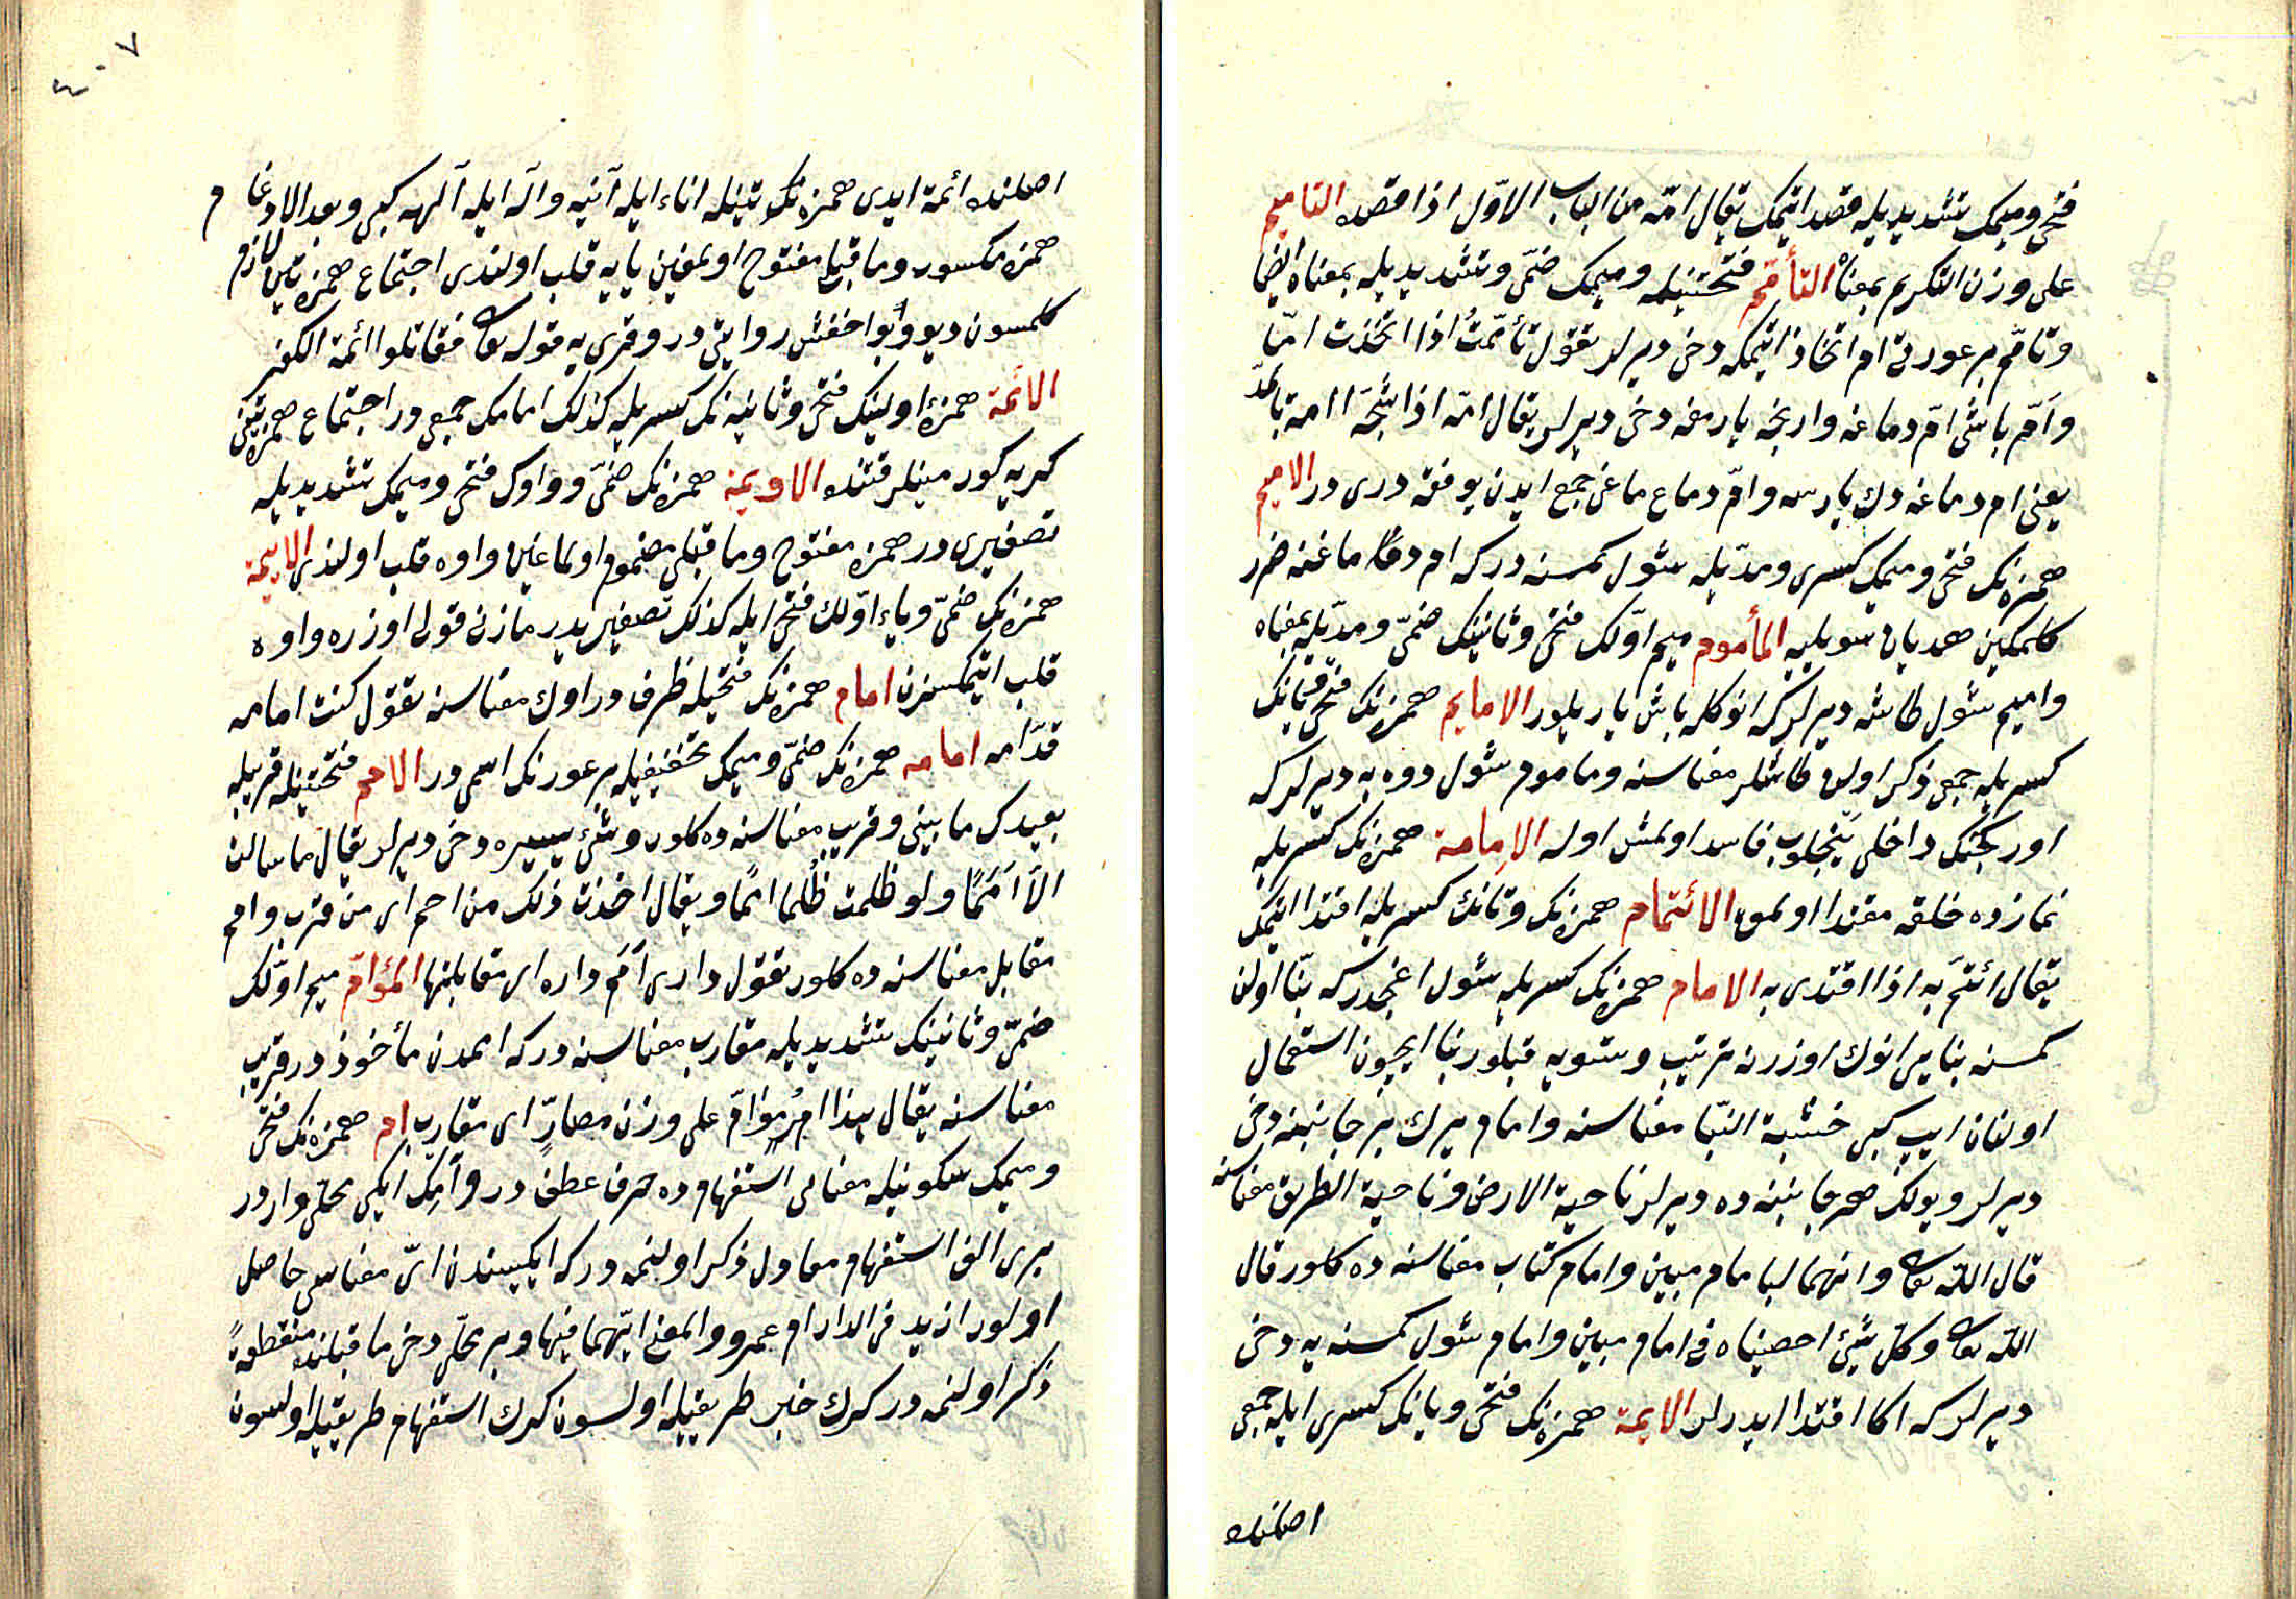 فتحی و میمک تشدیدیله قصد ایتمک یقال امّه من الباب الاوّل اذا قصده التامیم
علی وزن التکریم بمعناه التأمّم فتحتینله و میمک ضمّی و تشدیدیله بمعناه ایضا
و تامّم بر عورتی ام اتخاذ ایتمکه دخی دیرلر تقول تأمّمتُ اذا اتخذت امّا
و اَمّ باشی امّ دماغه وارنجه یارمغه دخی دیرلر یقال امّه اذا شجّه اامة بالمدّ
یعنی ام دماغه دك یارسه و امّ دماغ ماغی جمع ایدن یوفقه دری در الامیم
همزه‌نک فتحی و میمک کسری و مدّیله شول کمسنه درکه ام دماغنه ضرر
کلمکین هدیان سویلیه المأموم میم اوّلک فتحی و ثانینک ضمّی و مدّیله بمعناه
و امیم شول طاشه دیرلرکه انوکله باش یاریلور الامایم همزه‌نک فتحی یانک
کسریله جمعی ذکر اولن طاشلر معناسنه و ماموم شول دوه‌یه دیرلرکه
اورکجنک داخلی ینجلوب فاسد اولمش اوله الامامة همزه‌نک کسریله
نمازده خلقه مقتدا اولمق الائتمام همزه‌نک و تانک کسریله اقتدا ایتمک
یقال ائتمّ به اذا اقتدی به الامام همزه‌نک کسریله شول اغجدرکه بنّا اولن
کمسنه بنا یرانوك اوزرنه ترتیب و تسویه قیلور بنا ایچون استعمال
اولنان ایپ کبی خشبة البنّا معناسنه و امام یرك بر جانبنه دخی
دیرلر و یولک هر جانبنه ده دیرلر ناحیة الارض و ناحیة الطریق معناسنه
قال اللّه تعالی و انهما لبامام مبین و امام کتاب معناسنه ده کلور قال
اللّه تعالی و کل شیئ احصیناه فی امام مبین و امام شول کمسنه‌یه دخی
دیرلرکه اکا اقتدا ایدرلر الایمة همزه‌نک فتحی و یانک کسری ایله جمعی
اصلنده
٤٠٧
اصلنده ائمة ایدی همزه‌نک تینله اناء ایله آنیه و اله ایله آلهه کبی و بعد الادغام
همزه مکسور و ما قبلی مفتوح اولمغین یایه قلب اولندی اجتماع همزه‌تین لازم
کلمسون دیو و بو اخفش روایتی در و قری‌یه قوله تعالی فقاتلوا ائمة الکفر
الائمة همزۀ اولینک فتحی و ثانیه‌نک کسریله کذلک امامک جمعی در اجتماع همزتینی
کریه کورمینلر قتنده الاویمة همزه‌نک ضمّی و واوک فتحی و میمک تشدیدیله
تصغیری در همزه مفتوح و ما قبلی مضموم اولماغین واوه قلب اولندی الاییمة
همزه‌نک ضمّی و یاء اوّلك فتحی ایله کذلک تصغیریدیر مازن قولی اوزره واوه
قلب ایتمکسزن امام همزه‌نک فتحیله ظرف در اوك معناسنه تقول کنت امامه
قدّامه امامه همزه‌نک ضمّی و میمک تخفیفیله بر عورنک اسمی در الامم فتحتینله قریله
بعیدک مابینی و قریب معناسنه ده کلور و شئ یسیره دخی دیرلر یقال ما سالت
الاّ اَمَمًا و لو ظلمت ظُلما امًا و یقال اخذت ذلک من امم ای من قرب و امم
مقابل معناسنه ده کلور تقول داری اَمَم داره ای مقابلتها المؤامّ میم اوّلک
ضمّی و ثانینک تشدیدیله مقارب معناسنه درکه امدن مأخوذ در قریب
معناسنه یقال هذا امرُ مؤامّ علی وزن مضارّ ای مقارب ام همزه‌نک فتحی
و میمک سکونیله معنای استفهام ده حرف عطف در و اَمِک ایکی محلی واردر
بری الف استفهام معاول ذکر اولنمه درکه ایکیسندن ایّ معناسی حاصل
اولور ازید فی الدار ام عمرو و المعنی ایّهما فیها و بر محلّی دخی ما قبلنده منقطعةً
ذکر اولنمه در کرك خبر طریقیله اولسون کرك استفهام طریقیله اولسون